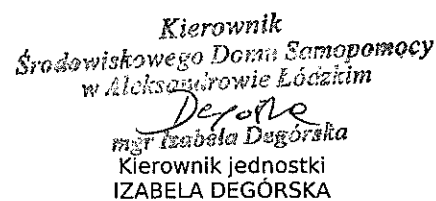 Kierownik
Środowiskowego Domu Samopomocy
w Aleksandrowie Łódzkim
mgr Izabela Degórska
Kierownik jednostki
IZABELA DEGÓRSKA